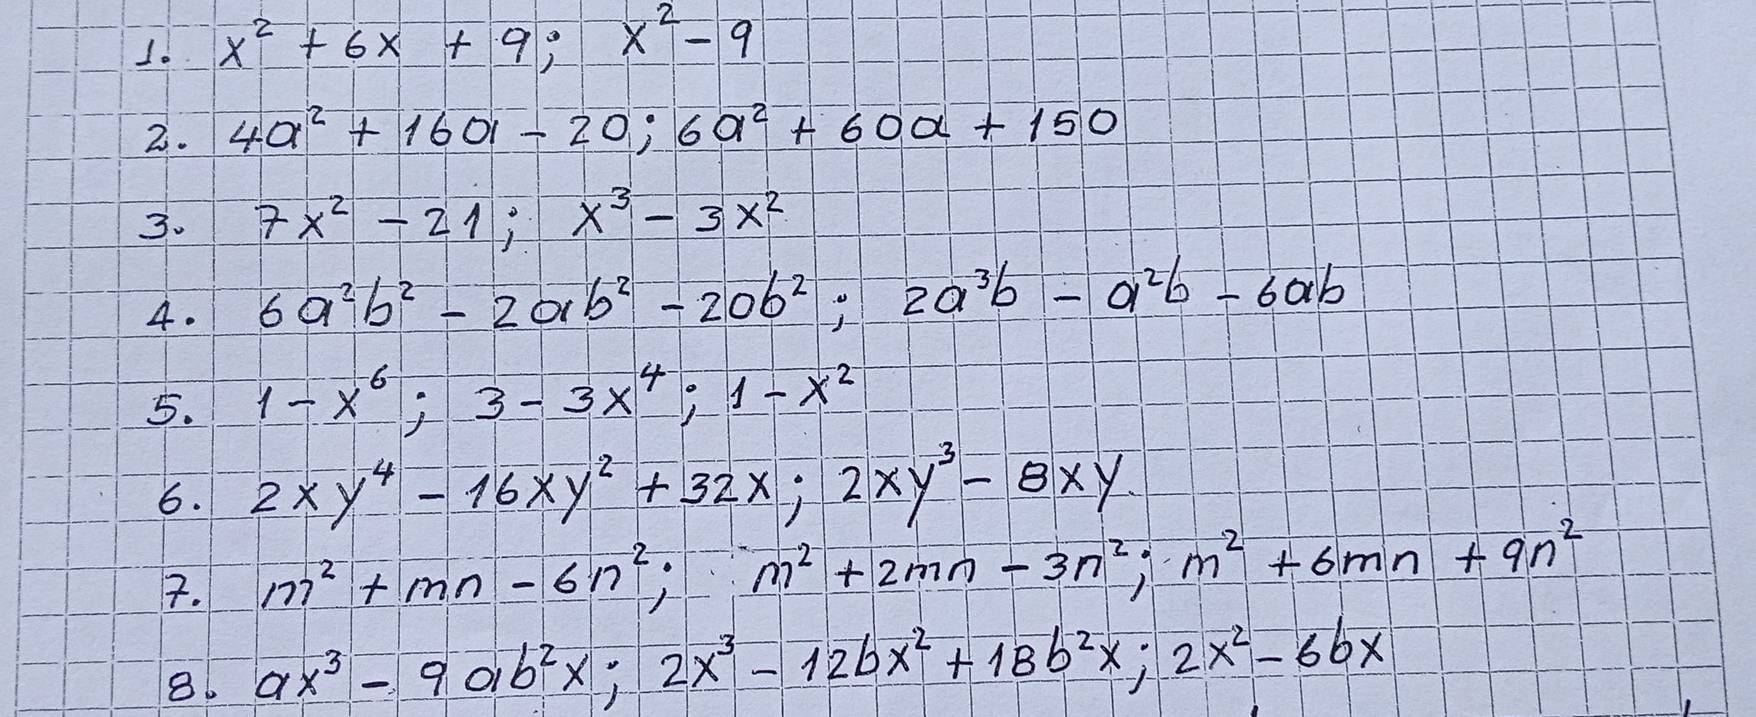 1. x² + 6x + 9; x² - 9
2. 4a² + 16a - 20; 6a² + 60a + 150
3. 7x² - 21; x³ - 3x²
4. 6a²b² - 2ab² - 20b²; 2a³b - a²b - 6ab
5. 1 - x⁶; 3 - 3x⁴; 1 - x²
6. 2xy⁴ - 16xy² + 32x; 2xy³ - 8xy.
7. m² + mn - 6n²; m² + 2mn - 3n²; m² + 6mn + 9n²
8. ax³ - 9ab²x; 2x³ - 12bx² + 18b²x; 2x² - 6bx